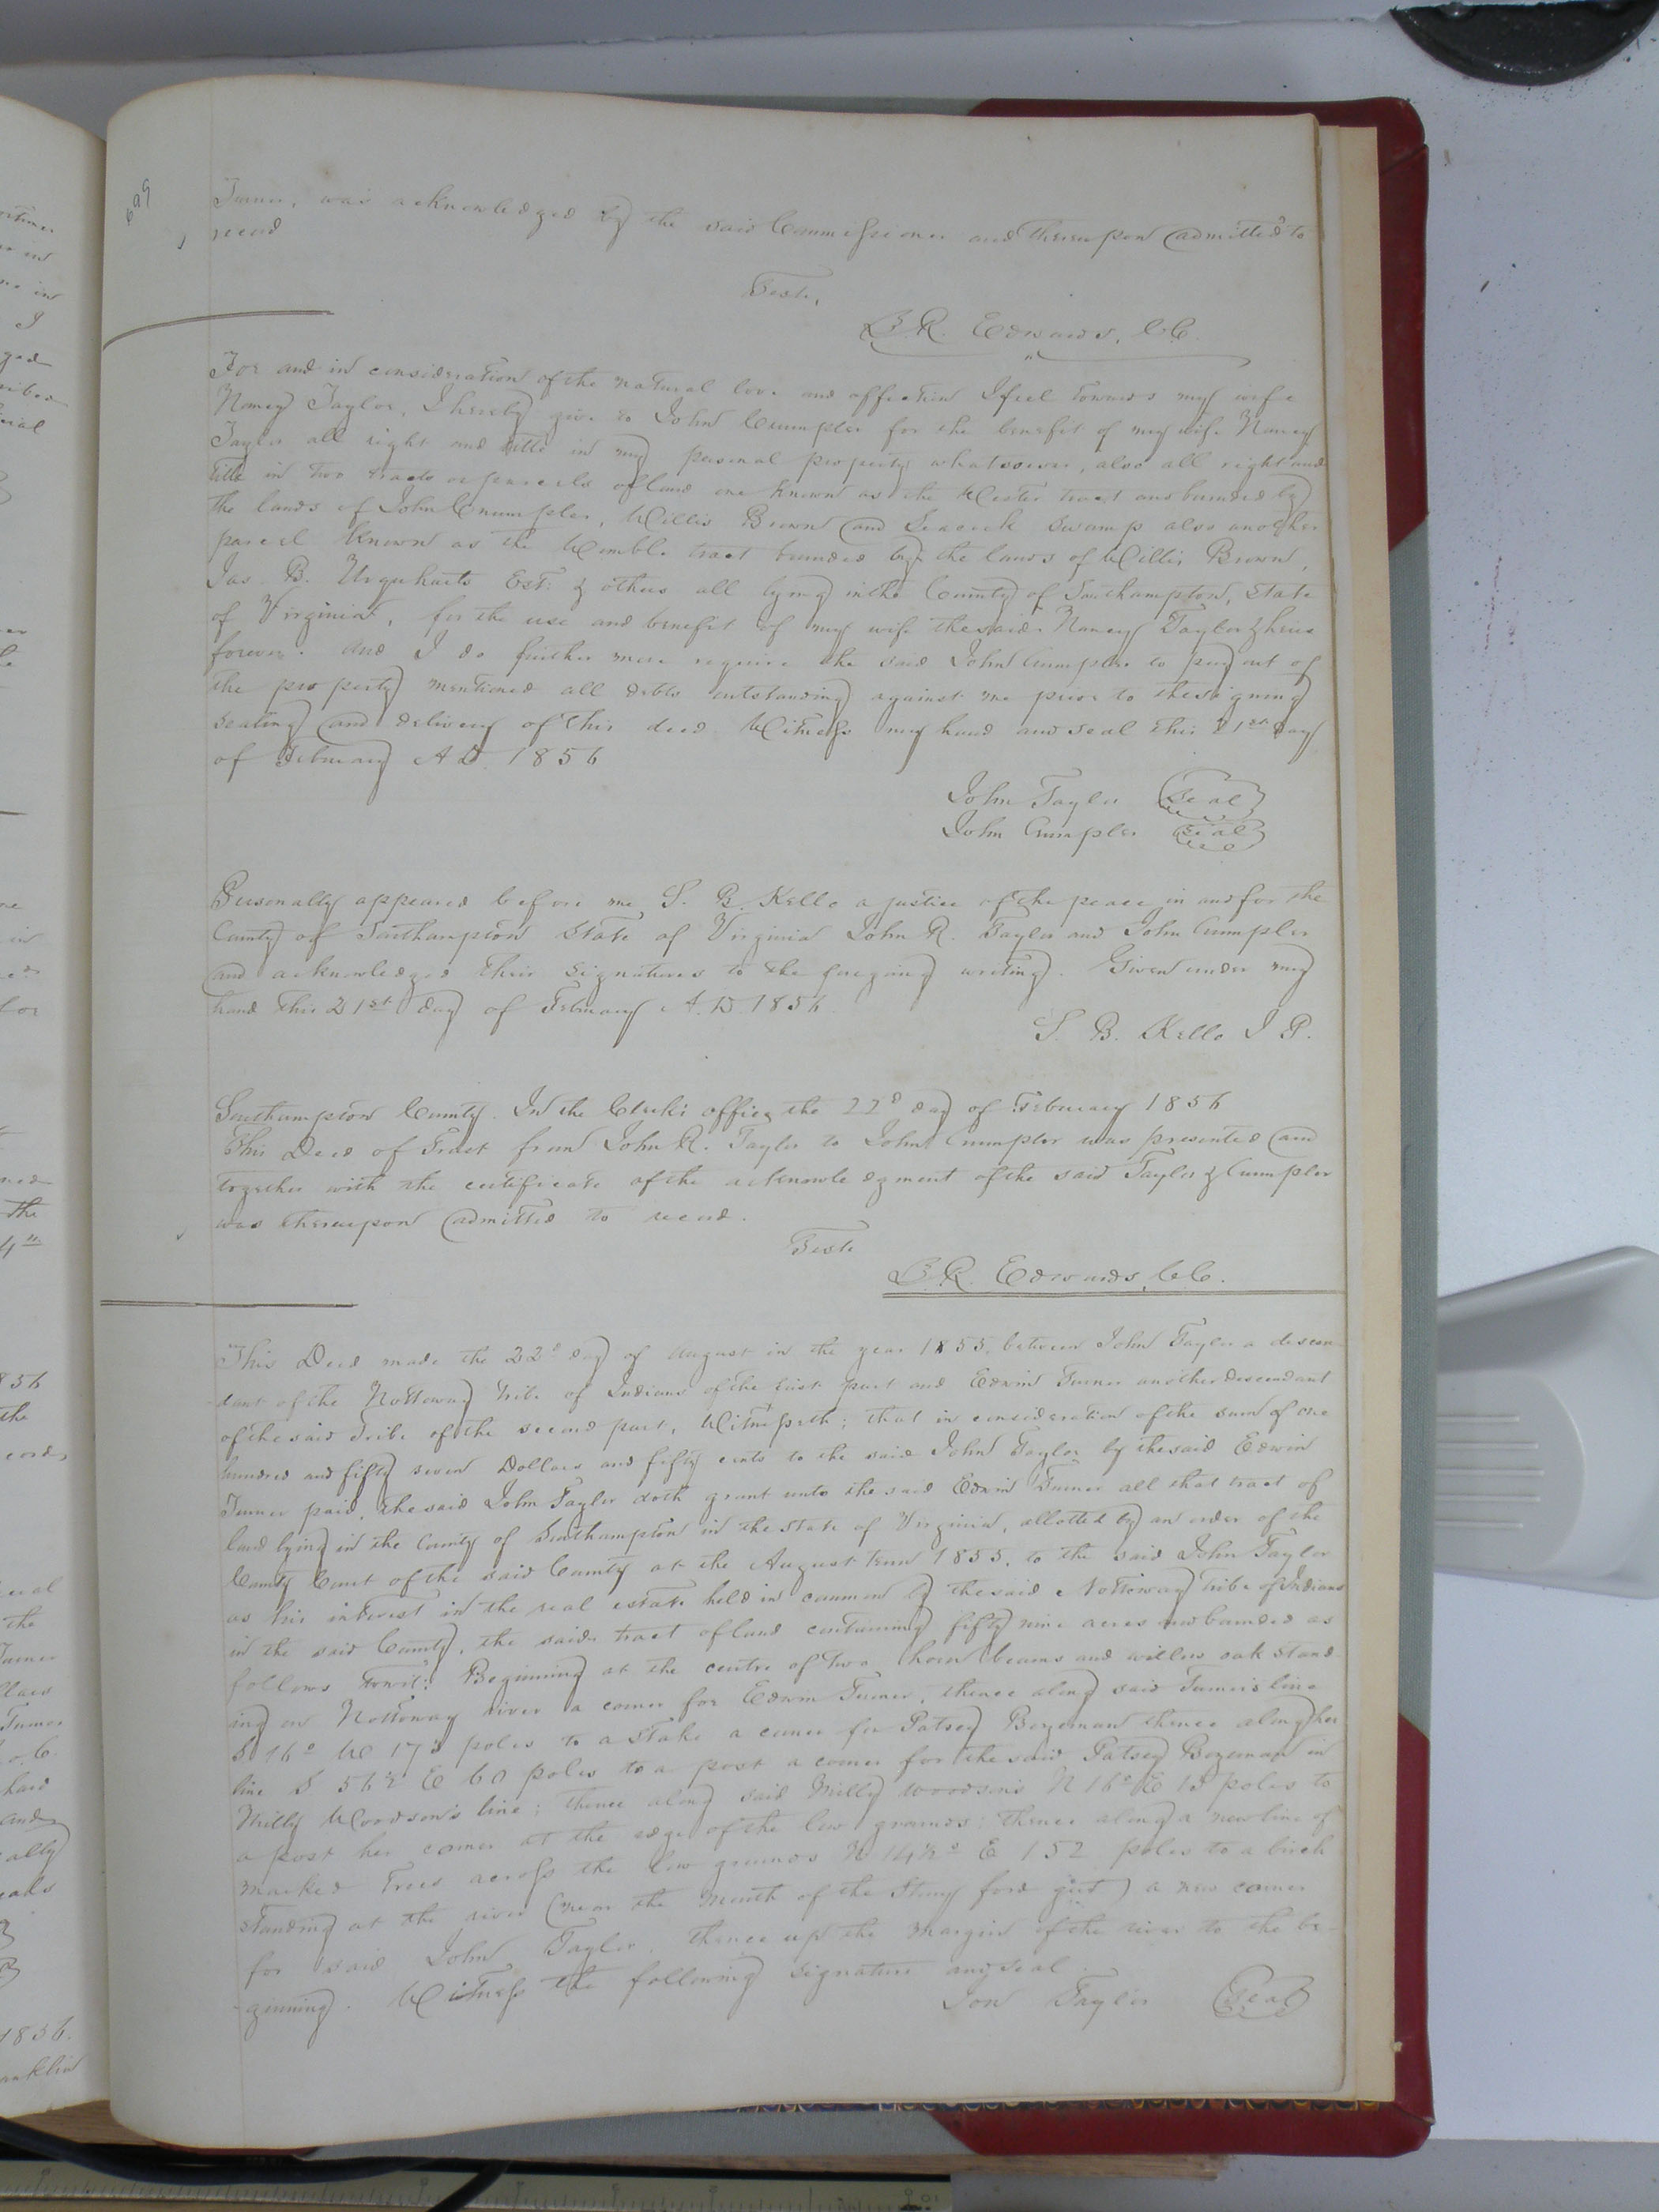 699
Turner, was acknowledged by the said Commissioner and thereupon admitted to
record
Teste,
L. R. Edwards, CC.
For and in consideration of the natural love and affection I feel towards my wife
Nancy Taylor, I hereby give to John Crumpler for the benefit of my wife Nancy
Taylor all right and title in my personal property whatsoever, also all right and
title in two tracts or parcels of land one known as the tract and bounded by
the lands of John Crumpler, Willis Brown and Seacock Swamp also another
parcel known as the Womble tract bounded by the lands of Willis Brown,
Jas. B. Urquharts Est: & others all lying in the County of Southampton, State
of Virginia, for the use and benefit of my wife the said Nancy Taylor & heirs
forever. And I do further more require the said John Crumpler to pay out of
the property mentioned all debts outstanding against me prior to the signing
sealing and delivery of this deed Witness my hand and seal this 21st day
of February A D. 1856
John Taylor Seal
John Crumpler Seal
Personally appeared before me S. B. Kello a justice of the peace in and for the
County of Southampton State of Virginia John R. Taylor and John Crumpler
and acknowledged their signatures to the foregoing writing. Given under my
hand this 21st day of February A. D. 1856
S. B. Kello J P.
Southampton County. In the Clerks office the 22d day of February 1856
This Deed of Trust from John R. Taylor to John Crumpler was presented and
together with the certificate of the acknowledgment of the said Taylor & Crumpler
was thereupon admitted to record.
Teste
L. R. Edwards, CC.
This Deed made the 22d day of August in the year 1855, between John Taylor a descen-
dant of the Nottoway tribe of Indians of the first part and Edwin Turner another descendant
of the said tribe of the second part, Witnesseth; that in consideration of the sum of one
hundred and fifty seven Dollars and fifty cents to the said John Taylor by the said Edwin
Turner paid, the said John Taylor doth grant unto the said Edwin Turner all that tract of
land lying in the County of Southampton in the State of Virginia, allotted by an order of the
County Court of the said County at the August term 1855, to the said John Taylor
as his interest in the real estate held in common by the said Nottoway tribe of Indians
in the said County, the said tract of land containing fifty nine acres and bounded as
follows towit: Beginning at the centre of two horn beams and willow oak stand-
ing on Nottoway river a corner for Edwin Turner, thence along said Turner's line
S 16° W poles to a stake a corner for Patsey Bozeman thence along her
line S 56½ E 60 poles to a post a corner for the said Patsey Bozeman in
Milly Woodson's line; thence along said Milly Woodson's N 16° E poles to
a post her corner at the edge of the low grounds; thence along a new line of
marked trees across the low grounds N 14½° E 152 poles to a birch
standing at the river (near the mouth of the Stony ford gut) a new corner
for said John Taylor, thence up the margin of the river to the be-
ginning. Witness the following signature and seal.
Jon Taylor Seal